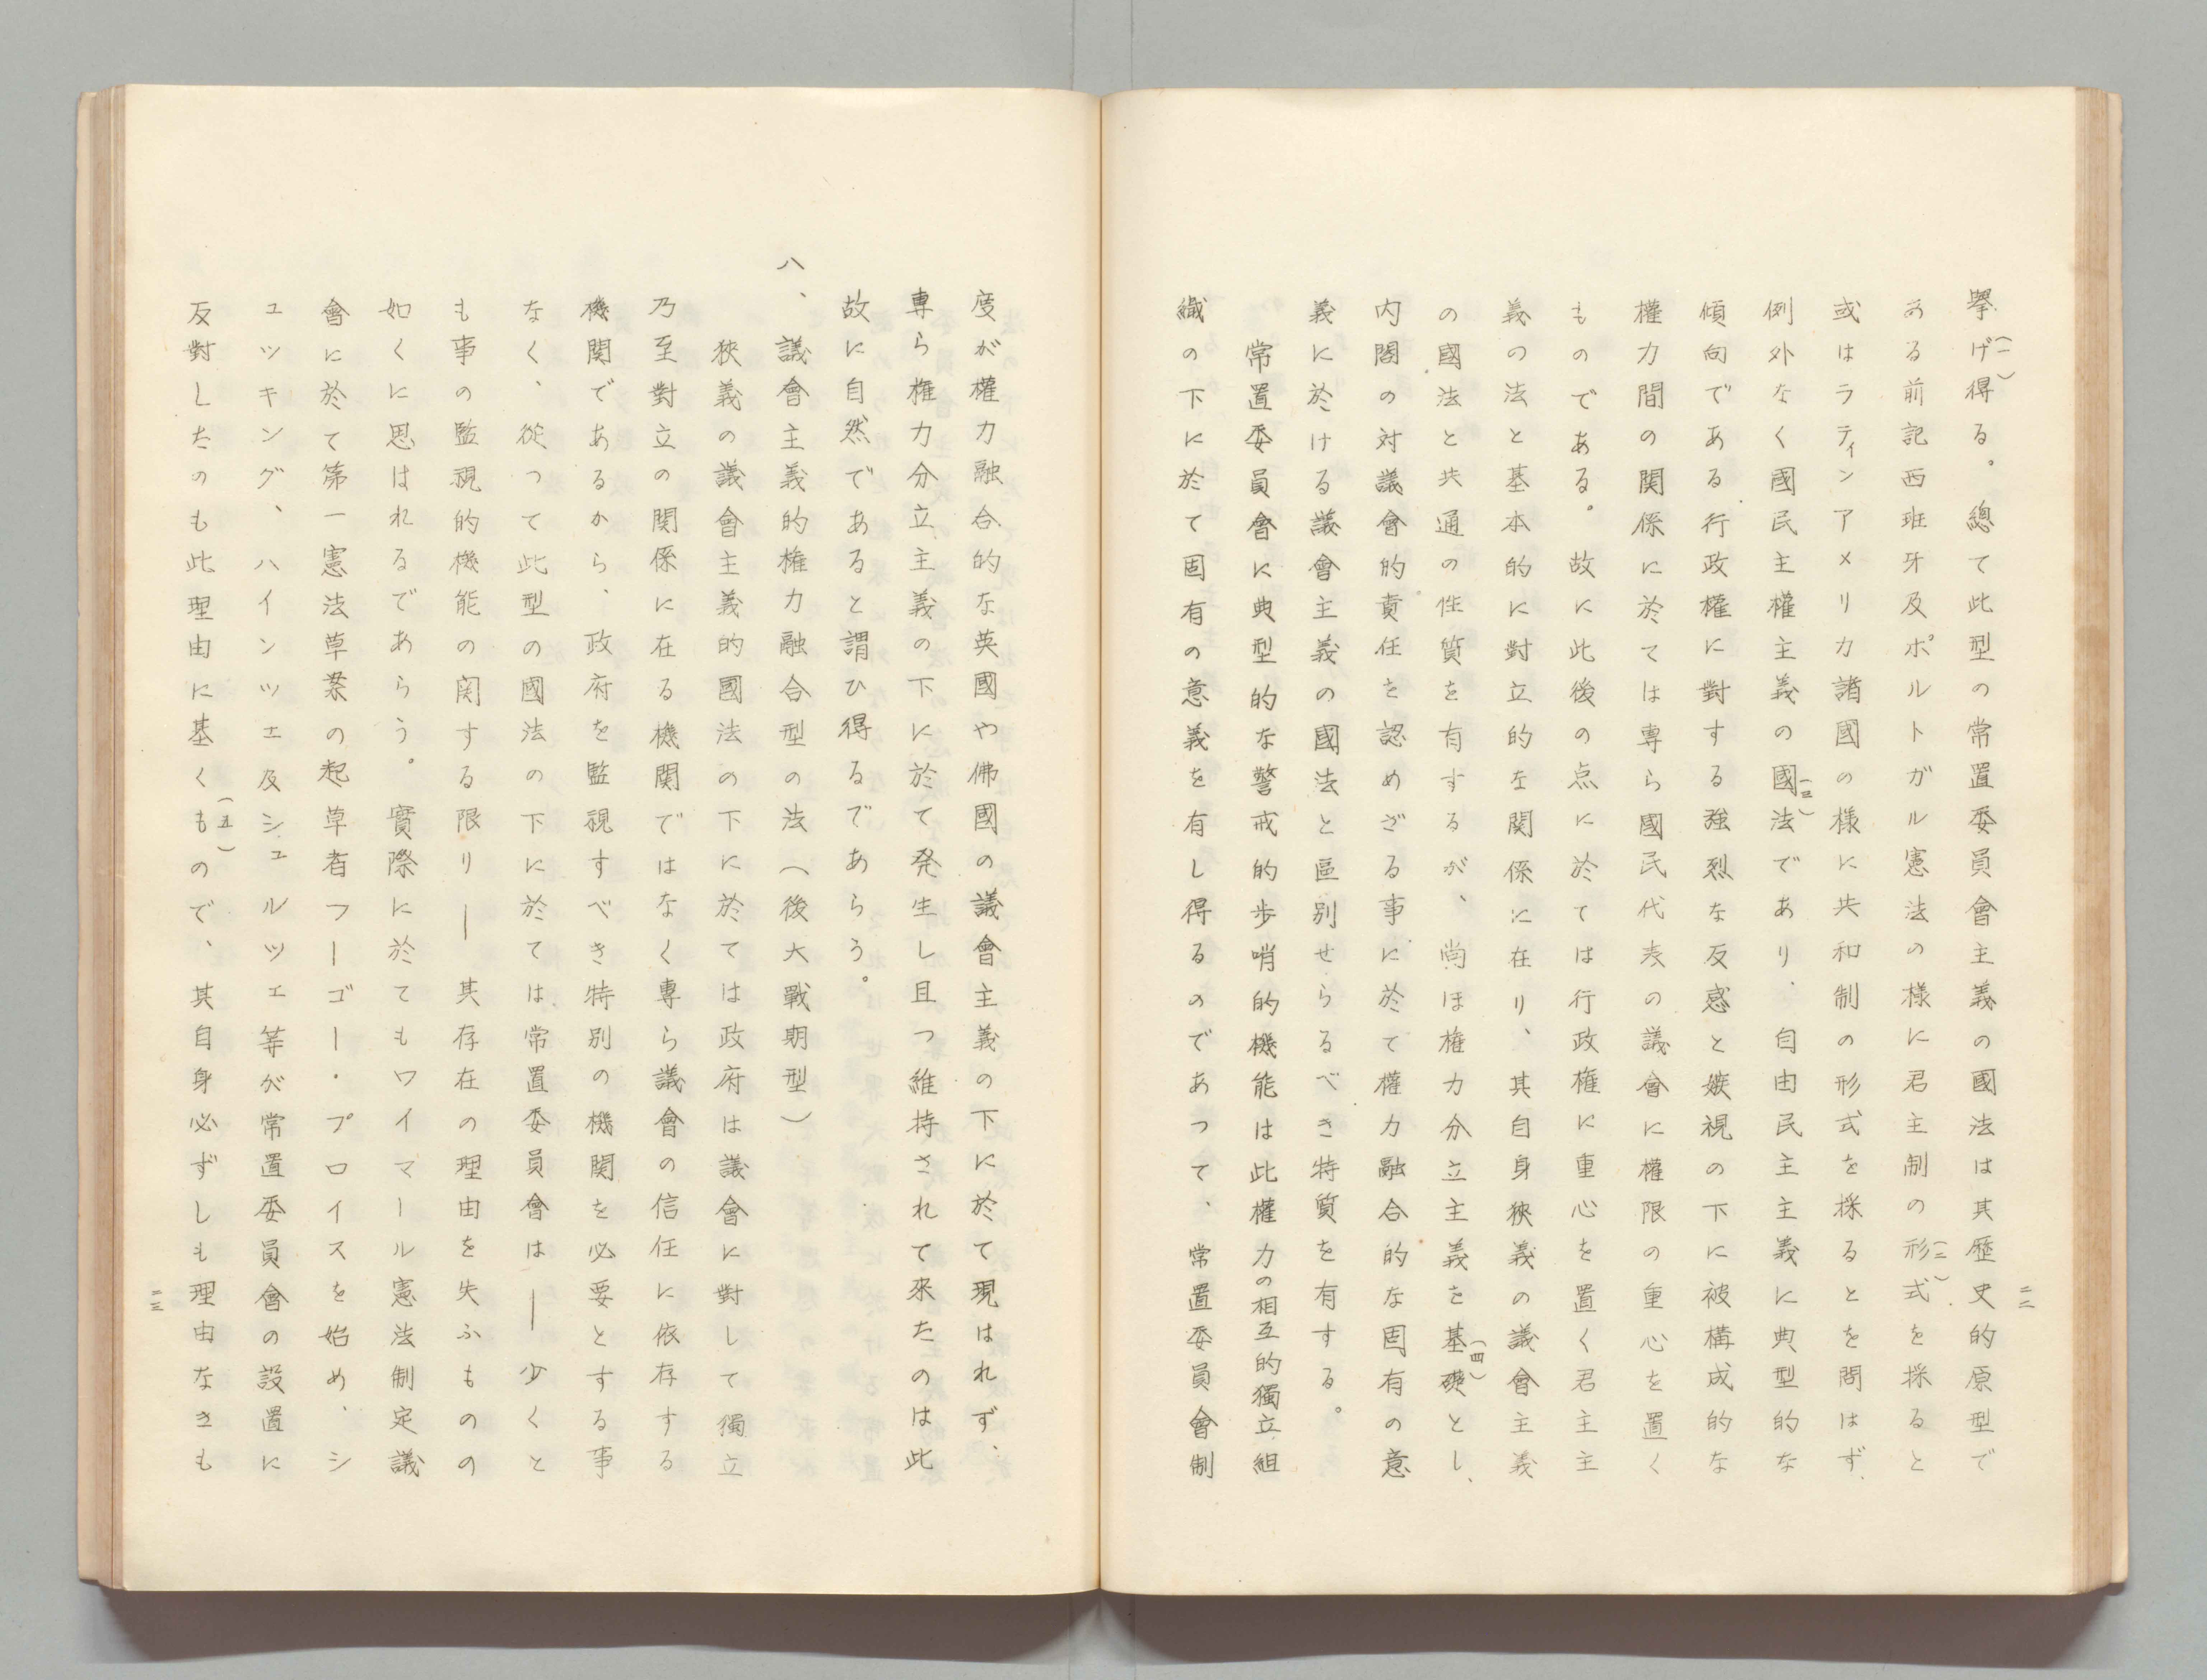 擧げ得る。總て此型の常置委員會主義の國法は其歷史的原型で
(一)
ある前記西班牙及ポルトガル憲法の様に君主制の形式を採ると
(二)
或はラティンアメリカ諸國の様に共和制の形式を採るとを問はず、
例外なく國民主權主義の國法であり、自由民主主義に典型的な
(三)
傾向である行政權に對する強烈な反感と嫉視の下に被構成的な
權力間の関係に於ては専ら國民代表の議會に權限の重心を置く
ものである。故に此後の点に於ては行政権に重心を置く君主主
義の法と基本的に對立的な関係に在り、其自身狹義の議會主義
の國法と共通の性質を有するが、尚ほ権力分立主義を基礎とし、
(四)
内閣の対議會的責任を認めざる事に於て權力融合的な固有の意
義に於ける議會主義の國法と區別せらるべき特質を有する。
常置委員會に典型的な警戒的歩哨的機能は此權力の相互的獨立組
織の下に於て固有の意義を有し得るのであつて、常置委員會制
二二
度が權力融合的な英國や佛國の議會主義の下に於て現はれず、
専ら権力分立主義の下に於て発生し且つ維持されて來たのは此
故に自然であると謂ひ得るであらう。
八、議會主義的権力融合型の法(後大戰期型)
狹義の議會主義的國法の下に於ては政府は議會に對して獨立
乃至對立の関係に在る機関ではなく専ら議會の信任に依存する
機関であるから、政府を監視すべき特別の機関を必要とする事
なく、從つて此型の國法の下に於ては常置委員會は──少くと
も事の監視的機能の関する限り──其存在の理由を失ふものの
如くに思はれるであらう。實際に於てもワイマール憲法制定議
會に於て第一憲法草案の起草者フーゴー・プロイスを始め、シ
ュッキング、ハインツェ及シュルツェ等が常置委員會の設置に
反對したのも此理由に基くもので、其自身必ずしも理由なきも
(五)
二三